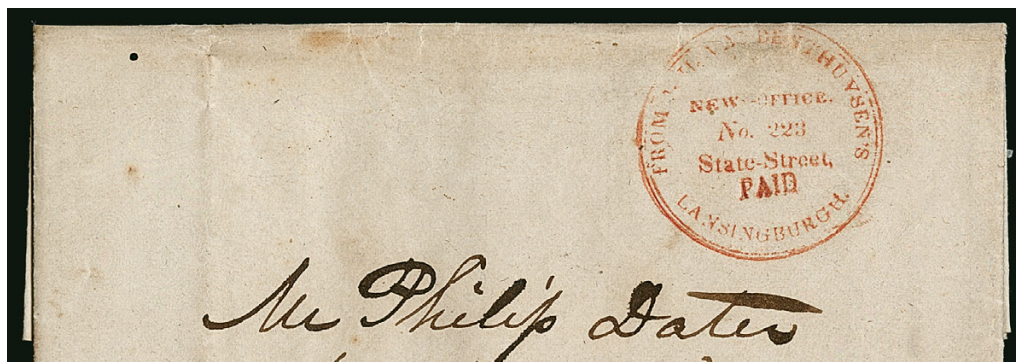 FROM VAN BENTHUYSEN'S
NEW-OFFICE.
No. 223
State-Street,
PAID
LANSINGBURGH.
Mr Philip Dater